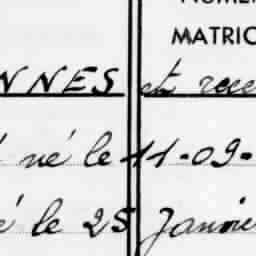 MATRIC
NNES est rece
né le 11-09-
é le 25 Janvie